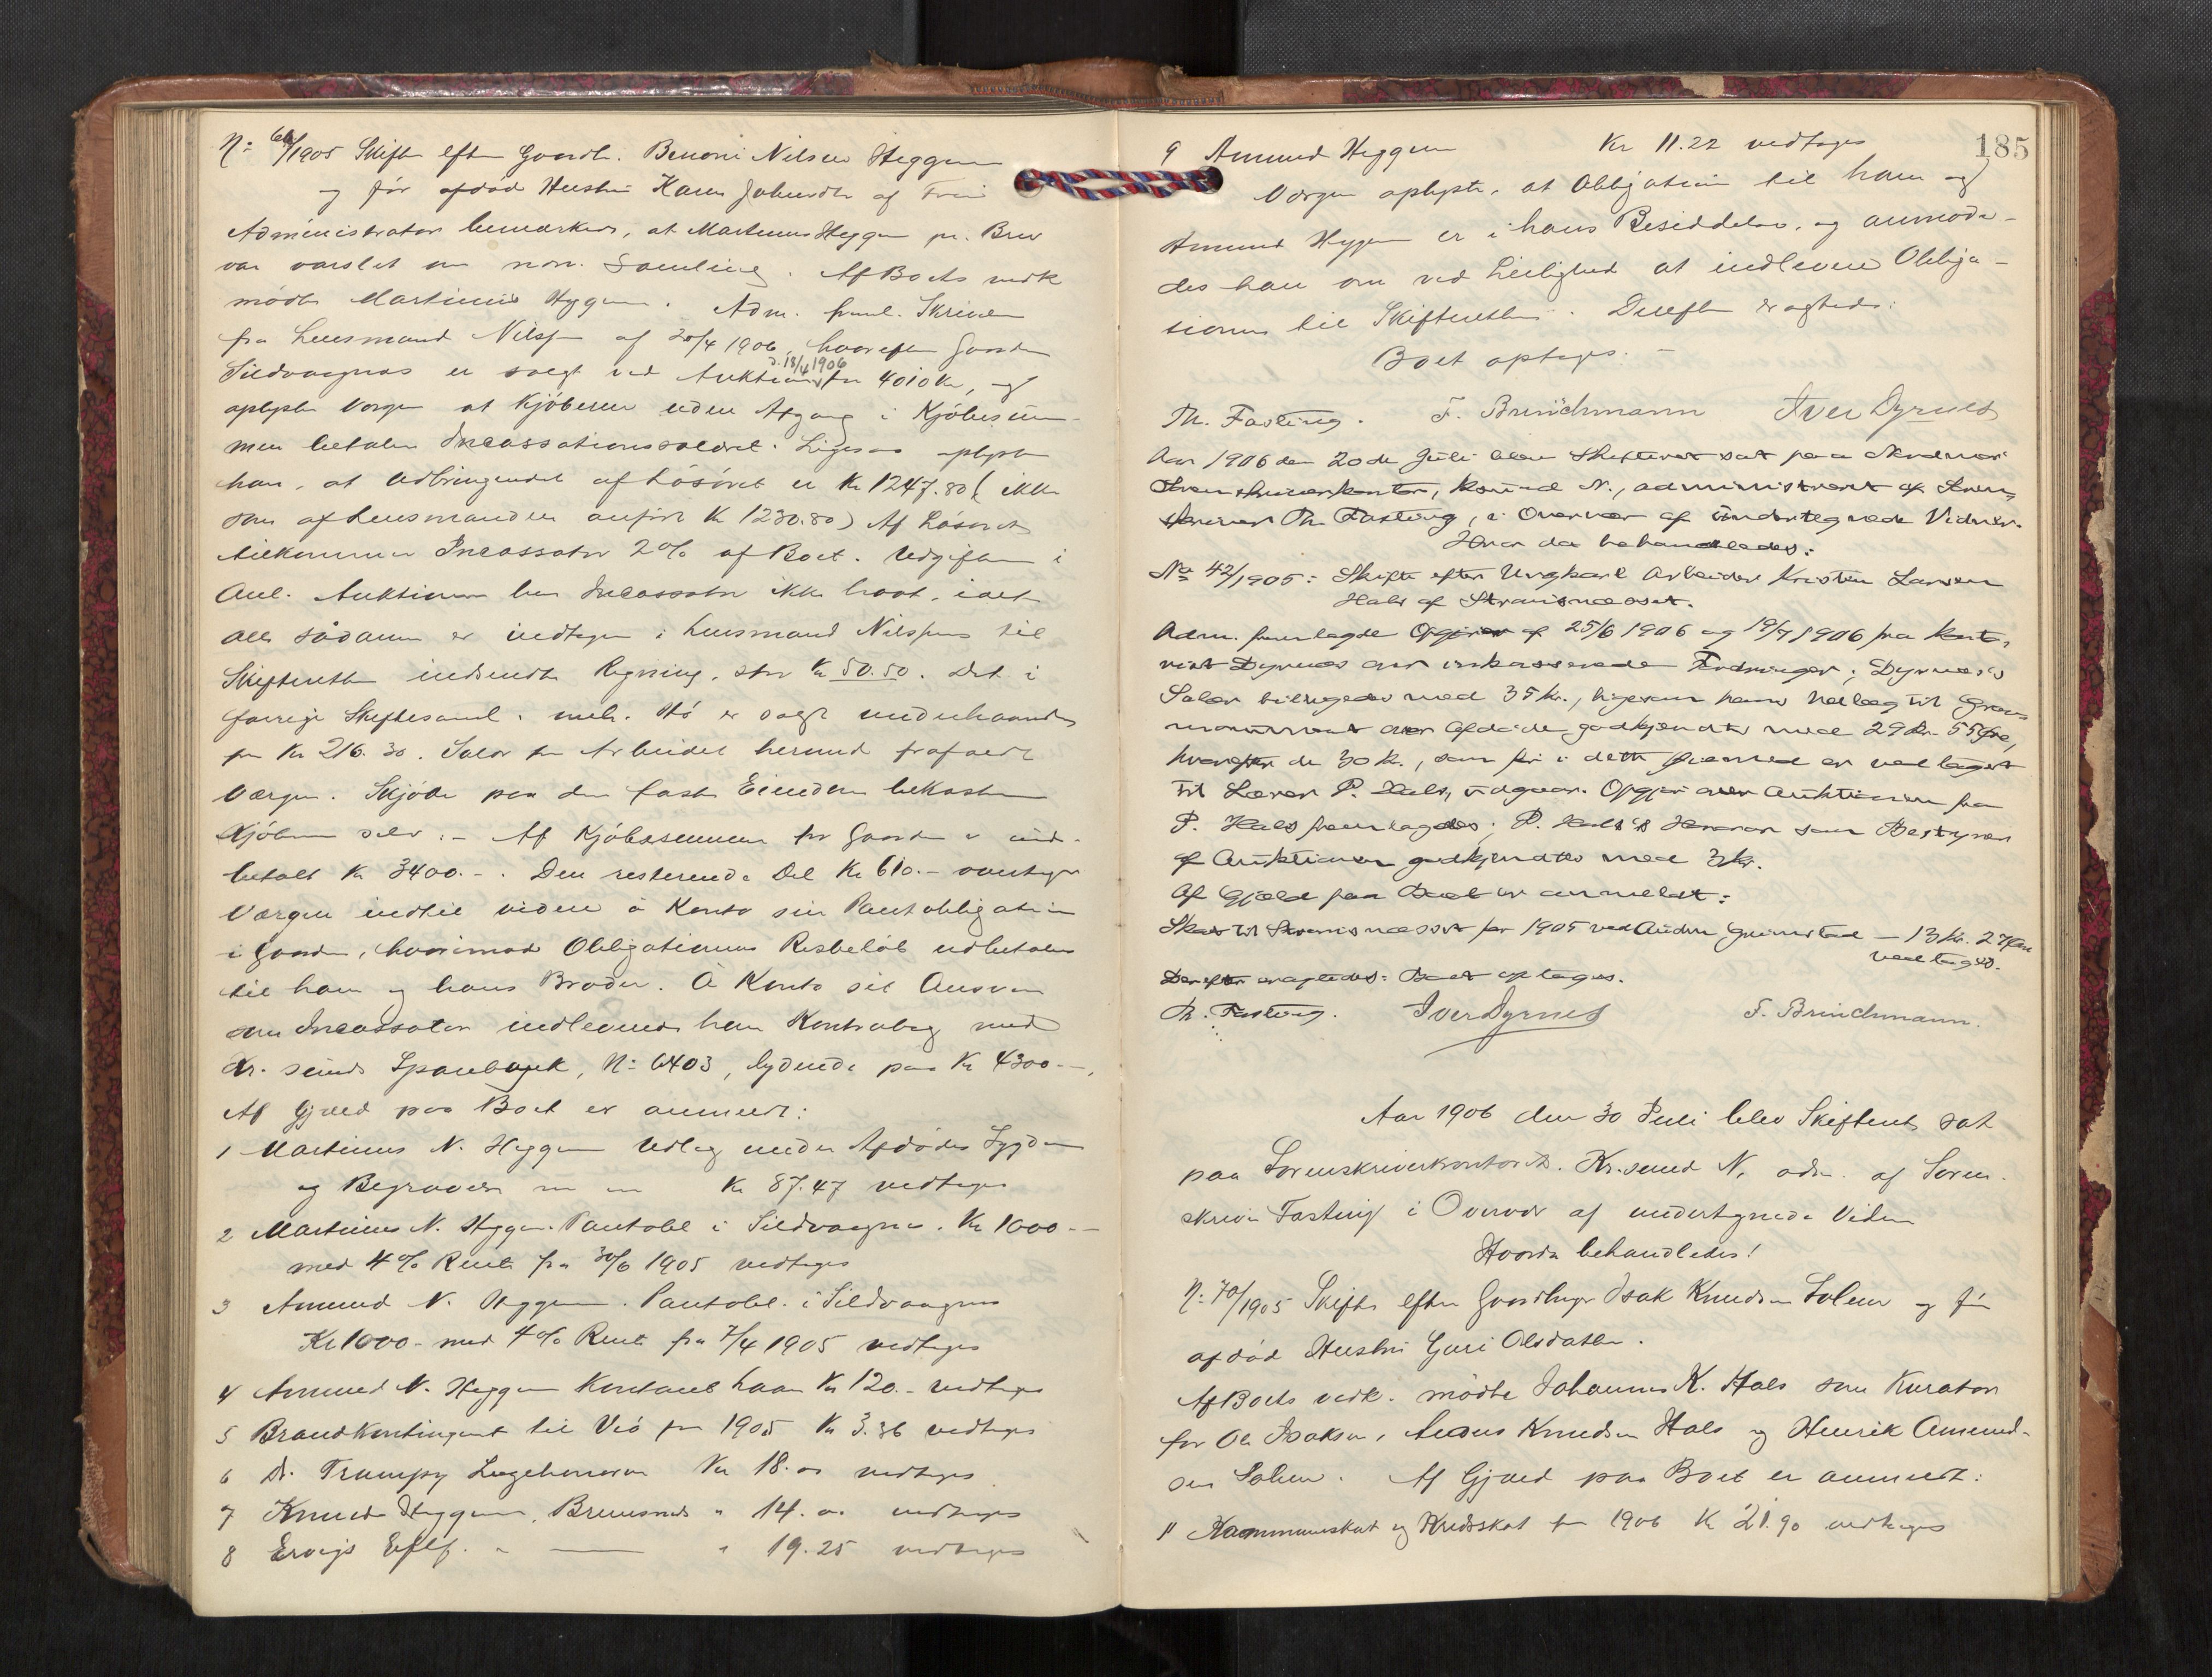 No 1905 Skifte efter Gaardbr. Benoni Nilsen Heggem
og før afdød Hustru Karen Johnsdtr af Frei
Administrator bemærkede, at Martinus Heggem pr. Brev
var varslet om nærv. Samling. Af Boets vedk
mødte Martinus Heggem. Adm. freml. Skrivelse
fra Lensmand Nilssen af 20/4 1906, hvorefter Gaarden
Sildvaagnes er solgt ved Auktion d. 18/4 1906 for 4010 Kr, og
oplyste Værgen at Kjøberen uden Afgang i Kjøbesum-
men betaler Incassationssalæret. Ligesaa oplyste
han, at Udbringendet af Løsøret er Kr 1247.80 (ikke
som af Lensmanden anført Kr 1230.80) Af Løsøret
tilkommer Incassator 2% af Boet. Udgifter i
Anl. Auktionen har Incassator ikke havt, idet
alle sådanne er indtagne i Lensmand Nilssens til
Skifteretten indsendte Regning, stor Kr 50.50. Det i
forrige Skiftesaml. meh. Hø er solgt underhaanden
for Kr 216.30. Salær for Arbeidet hermed frafaldt
Værgen. Skjøde paa den faste Eiendom bekoster
Kjøberen selv. - Af Kjøbesummen for Gaarden er ind-
betalt Kr 3400.-. Den resterende Del Kr 610.- overtager
Værgen indtil videre à Konto sin Pantobligation
i Gaarden, hvorimod Obligationens Restbeløb udbetales
til ham og hans Broder. À Konto sit Ansvar
som Incassator indleverede han Kontrabog med
Kr. sunds Sparebank, No 6403, lydende paa Kr 4300.-,
Af Gjæld paa Boet er anmeldt:
1 Martinus N. Heggem Udlæg under Afdødes Sygdom
og Begravelse m m Kr 87.47 vedtages
2 Martinus N. Heggem Pantobl. i Sildvaagnes. Kr 1000.-
med 4% Rente fra 30/6 1905 vedtages
3 Amund N. Heggem. Pantobl. i Sildvaagnes
Kr 1000.- med 4% Rente fra 7/4 1905 vedtages
4 Amund N. Heggem Kontant Laan Kr 120.- vedtages
5 Brandkontingent til Viø for 1905 Kr 3.36 vedtages
6 Dr. Trampy Lægehonorar Kr 18.00 vedtages
7 Knud Heggem, Bremsnes " 14.00 vedtages
8 Ervigs Eftf. " — " 19.25 vedtages
185
9 Amund Heggem Kr 11.22 vedtages
Værgen oplyste, at Obligation til ham og
Amund Heggem er i hans Besiddelse, og anmode-
des han om ved Leilighed at indlevere Obliga-
tionen til Skifteretten. Derefter eragtedes:
Boet optages. -
Th. Fasting. F. Brinchmann Iver Dyrnes
Aar 1906 den 20de Juli blev Skifteret sat paa Nordmør
Sorenskriverkontor, Krsund N., administreret af Soren-
skriver Th. Fasting, i Overvær af undertegnede Vidner.
Hvor da behandledes:
No 42/1905: Skifte efter Ungkarl Arbeider Kristen Larsen
Hals af Strømsnesset.
Adm. fremlagde Opgjør af 25/6 1906 og 19/7 1906 fra Konto-
rist Dyrnes over inkasserede Fordringer; Dyrnes's
Salær bilægges med 35 Kr., ligesom hans Udlæg til Grav-
monument over Afdøde godkjendtes med 29 Kr. 55 Øre,
hvorefter de 30 Kr., som før i dette Øiemed er vedtaget
til Lærer P. Hals, udgaar. Opgjør over Auktionen fra
P. Hals fremlagdes; P. Hals's Honorar som Bestyrer
af Auktionen godkjendtes med 3 kr.
Af Gjæld paa Boet er anmeldt:
Skat til Strømsnesset for 1905 ved Anders Grimstad — 13 Kr. 27 Øre
vedtages.
Derefter eragtedes: Boet optages.
Th. Fasting. Iver Dyrnes F. Brinchmann.
Aar 1906 den 30 Juli blev Skifteret sat
paa Sorenskriverkontoret. Kr.sund N, adm. af Soren-
skriver Fasting i Overvær af undertegnede Vidner
Hvorda behandledes:
No 70/1905 Skifte efter Gaardbruger Isak Knudsen Solem og før
afdød Hustru Guri Olsdatter.
Af Boets vedk. mødte Johannes K. Hals som Kurator
for Ole Isaksen, Knudsen Hals og Henrik Amund-
sen Solem. Af Gjæld paa Boet er anmeldt:
1) Kommuneskat og Kredsskat for 1906 Kr 21.90 vedtages